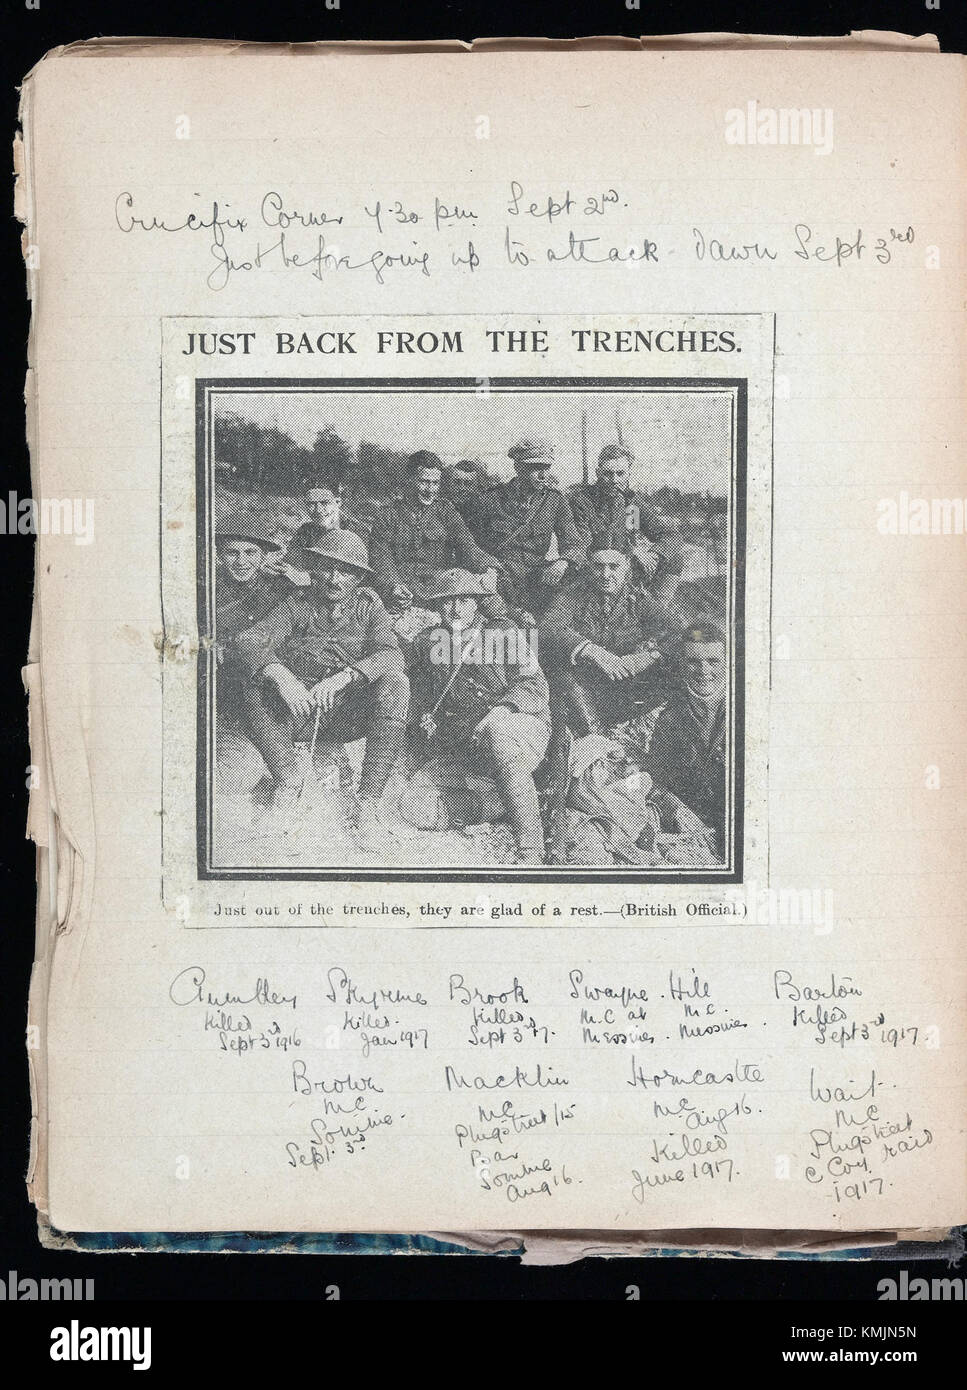 Crucifix Corner 4.30 p.m. Sept 2nd.
Just before going up to attack - Dawn Sept 3rd
JUST BACK FROM THE TRENCHES.
Just out of the trenches, they are glad of a rest.—(British Official.)
Skyrme Brook Swayne. Hill Barton
Killed Killed. Killed M.C at M.C. Killed
Sept 3rd 1916 Jan 1917 Sept 3rd 17. Messines. Messines. Sept 3rd 1917.
Brown Macklin Horncastle Wait.
MC MC MC MC
Somme. Plugstreet/15 Aug 16. Plugstreet
Sept. 3rd Bar Killed C Coy. raid
Somme June 1917. 1917.
Aug 16.
alamy
alamy stock photo
KMJN5N
www.alamy.com